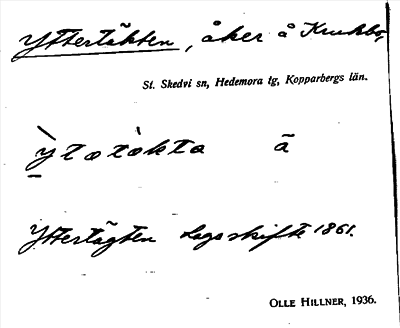 Yttertäkten, åker å Krukbo,
St. Skedvi sn, Hedemora tg, Kopparbergs län.
ỳtətàkta ā
Yttertägten Laga skifte 1861.
OLLE HILLNER, 1936.